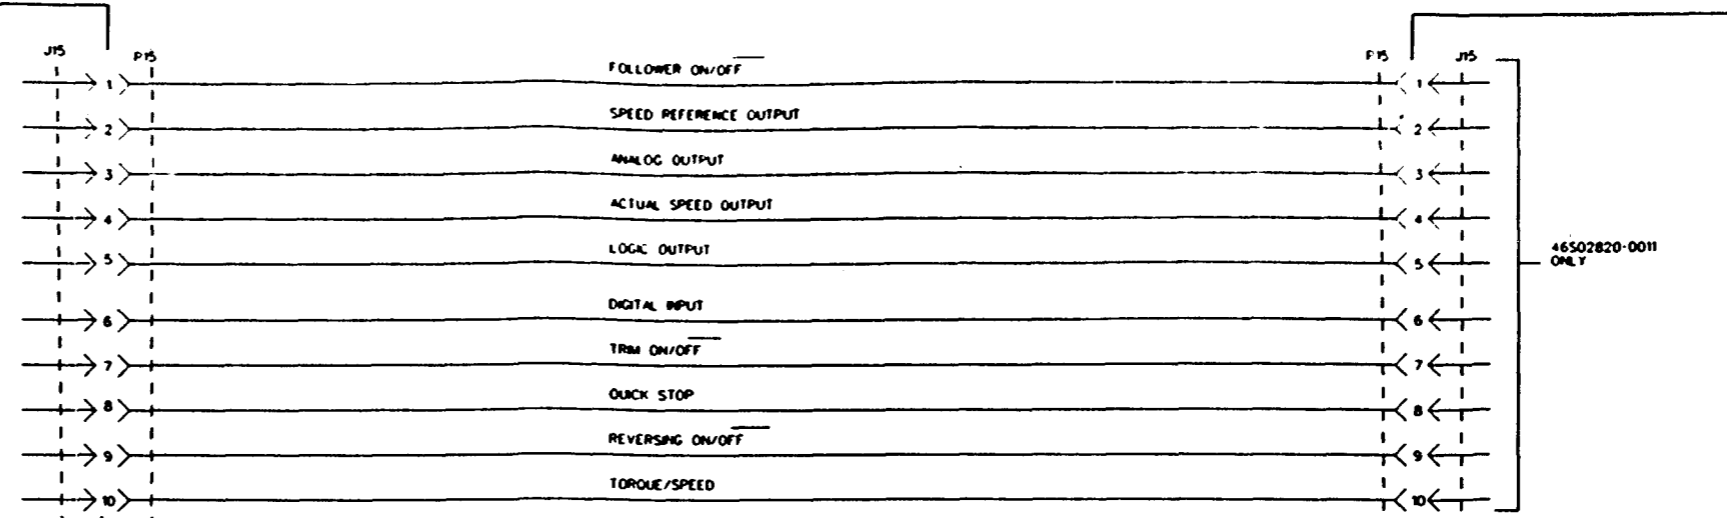 J15 P15 P15 J15
1 FOLLOWER ON/OFF 1
2 SPEED REFERENCE OUTPUT 2
3 ANALOG OUTPUT 3
4 ACTUAL SPEED OUTPUT 4
5 LOGIC OUTPUT 5
46S02820-0011
ONLY
6 DIGITAL INPUT 6
7 TRIM ON/OFF 7
8 QUICK STOP 8
9 REVERSING ON/OFF 9
10 TORQUE/SPEED 10